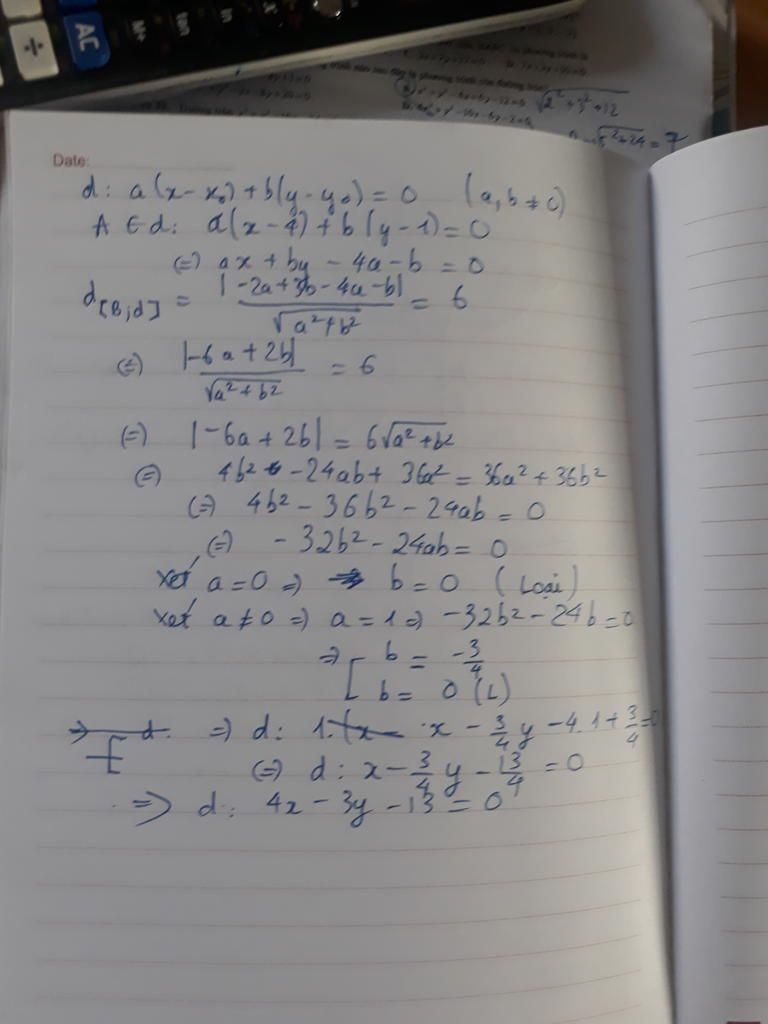 ÷ AC M+ tan ln
√2² + 3² + 12
√5²+24 = 7
Date:
d: a(x - x₀) + b(y - y₀) = 0 (a, b ≠ 0)
A ∈ d: a(x - 4) + b(y - 1) = 0
(=) ax + by - 4a - b = 0
d[B;d] = |-2a + 3b - 4a - b| / √a² + b² = 6
(=) |-6a + 2b| / √a² + b² = 6
(=) |-6a + 2b| = 6√a² + b²
(=) 4b² - 24ab + 36a² = 36a² + 36b²
(=) 4b² - 36b² - 24ab = 0
(=) - 32b² - 24ab = 0
xét a = 0 => b = 0 (Loại)
xét a ≠ 0 => a = 1 => -32b² - 24b = 0
=> [ b = -3/4
b = 0 (L)
=> d: => d: 1. x - 3/4 y - 4.1 + 3/4 = 0
(=) d: x - 3/4 y - 13/4 = 0
=> d: 4x - 3y - 13 = 0